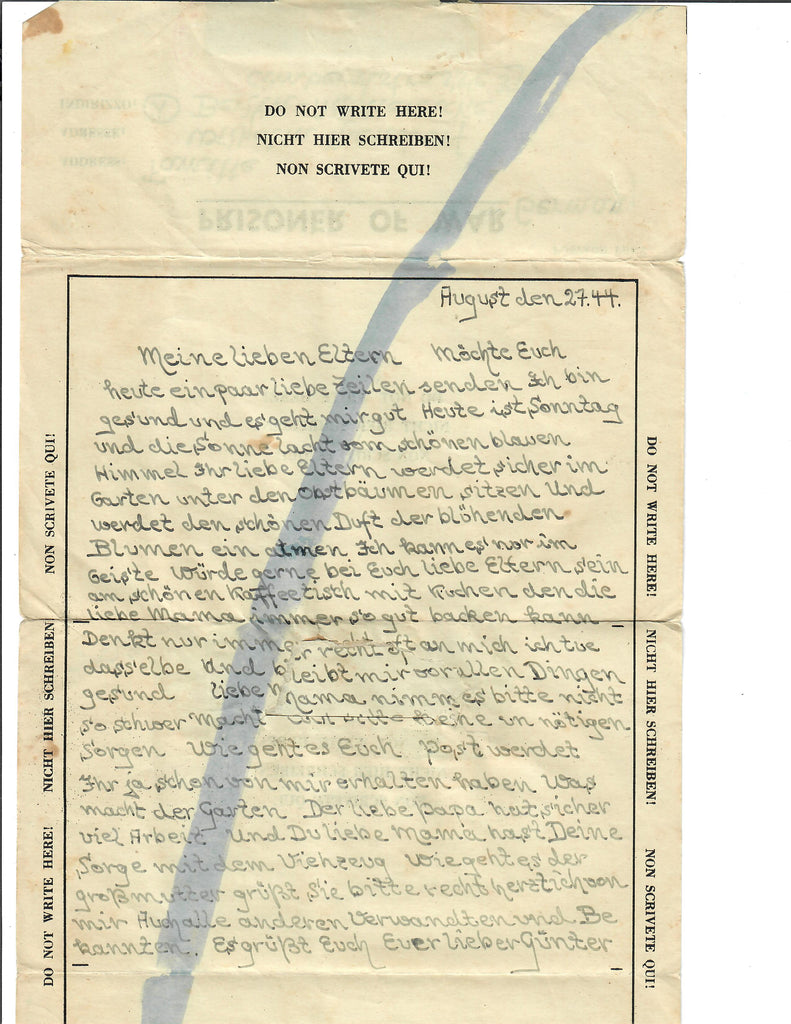 DO NOT WRITE HERE!
NICHT HIER SCHREIBEN!
NON SCRIVETE QUI!
INDIRIZZO:
ADRESSE:
ADDRESS:
PRISONER OF WAR German
August den 27.44.
Meine lieben Eltern Möchte Euch
heute ein paar liebe Zeilen senden Ich bin
gesund und es geht mir gut Heute ist Sonntag
und die Sonne lacht vom schönen blauen
Himmel Ihr liebe Eltern werdet sicher im
Garten unter den Obstbäumen sitzen Und
werdet den schönen Duft der blöhenden
Blumen ein atmen Ich kann es nor im
Geiste Würde gerne bei Euch liebe Eltern sein
am schönen Kaffeetisch mit Kuchen den die
liebe Mama immer so gut backen kann
Denkt nur immer recht oft an mich ich tue
dasselbe Und bleibt mir vor allen Dingen
gesund liebe Mama nimm es bitte nicht
so schwer Macht Euch bitte keine un nötigen
Sorgen Wie geht es Euch Post werdet
Ihr ja schon von mir erhalten haben Was
macht der Garten Der liebe Papa hat sicher
viel Arbeit Und Du liebe Mama hast Deine
Sorge mit dem Viehzeug Wie geht es der
Großmutter grüßt Sie bitte recht herzlich von
mir Auch alle anderen Verwandten und Be
kannten. Es grüßt Euch Euer lieber Günter
DO NOT WRITE HERE! NICHT HIER SCHREIBEN NON SCRIVETE QUI!
DO NOT WRITE HERE! NICHT HIER SCHREIBEN! NON SCRIVETE QUI!